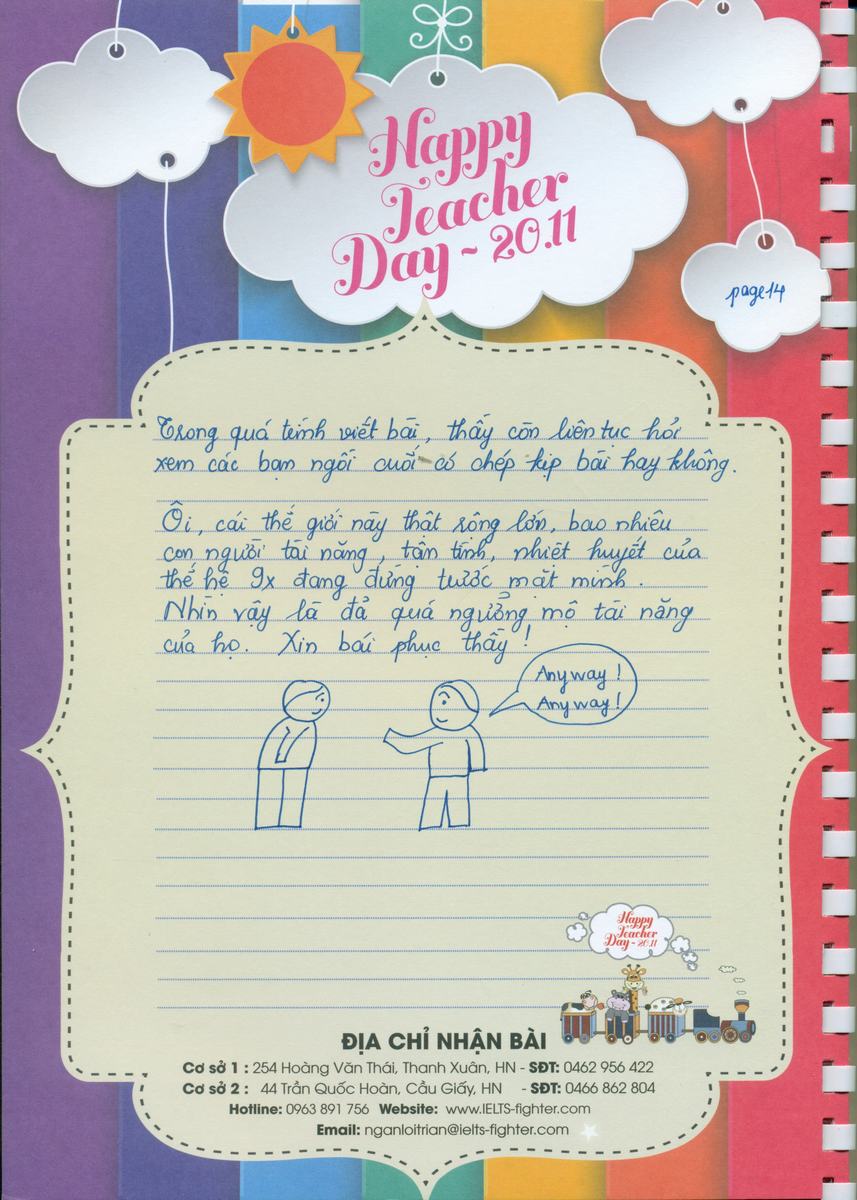 Happy
Teacher
Day - 20.11
page 14
Trong quá trình viết bài, thầy còn liên tục hỏi
xem các bạn ngồi cuối có chép kịp bài hay không.
Ôi, cái thế giới này thật rộng lớn, bao nhiêu
con người tài năng, tận tình, nhiệt huyết của
thế hệ 9x đang đứng trước mặt mình.
Nhìn vậy là đã quá ngưỡng mộ tài năng
của họ. Xin bái phục thầy!
Anyway!
Anyway!
Happy
Teacher
Day - 20.11
ĐỊA CHỈ NHẬN BÀI
Cơ sở 1 : 254 Hoàng Văn Thái, Thanh Xuân, HN - SĐT: 0462 956 422
Cơ sở 2 : 44 Trần Quốc Hoàn, Cầu Giấy, HN - SĐT: 0466 862 804
Hotline: 0963 891 756 Website: www.IELTS-fighter.com
Email: nganloitrian@ielts-fighter.com